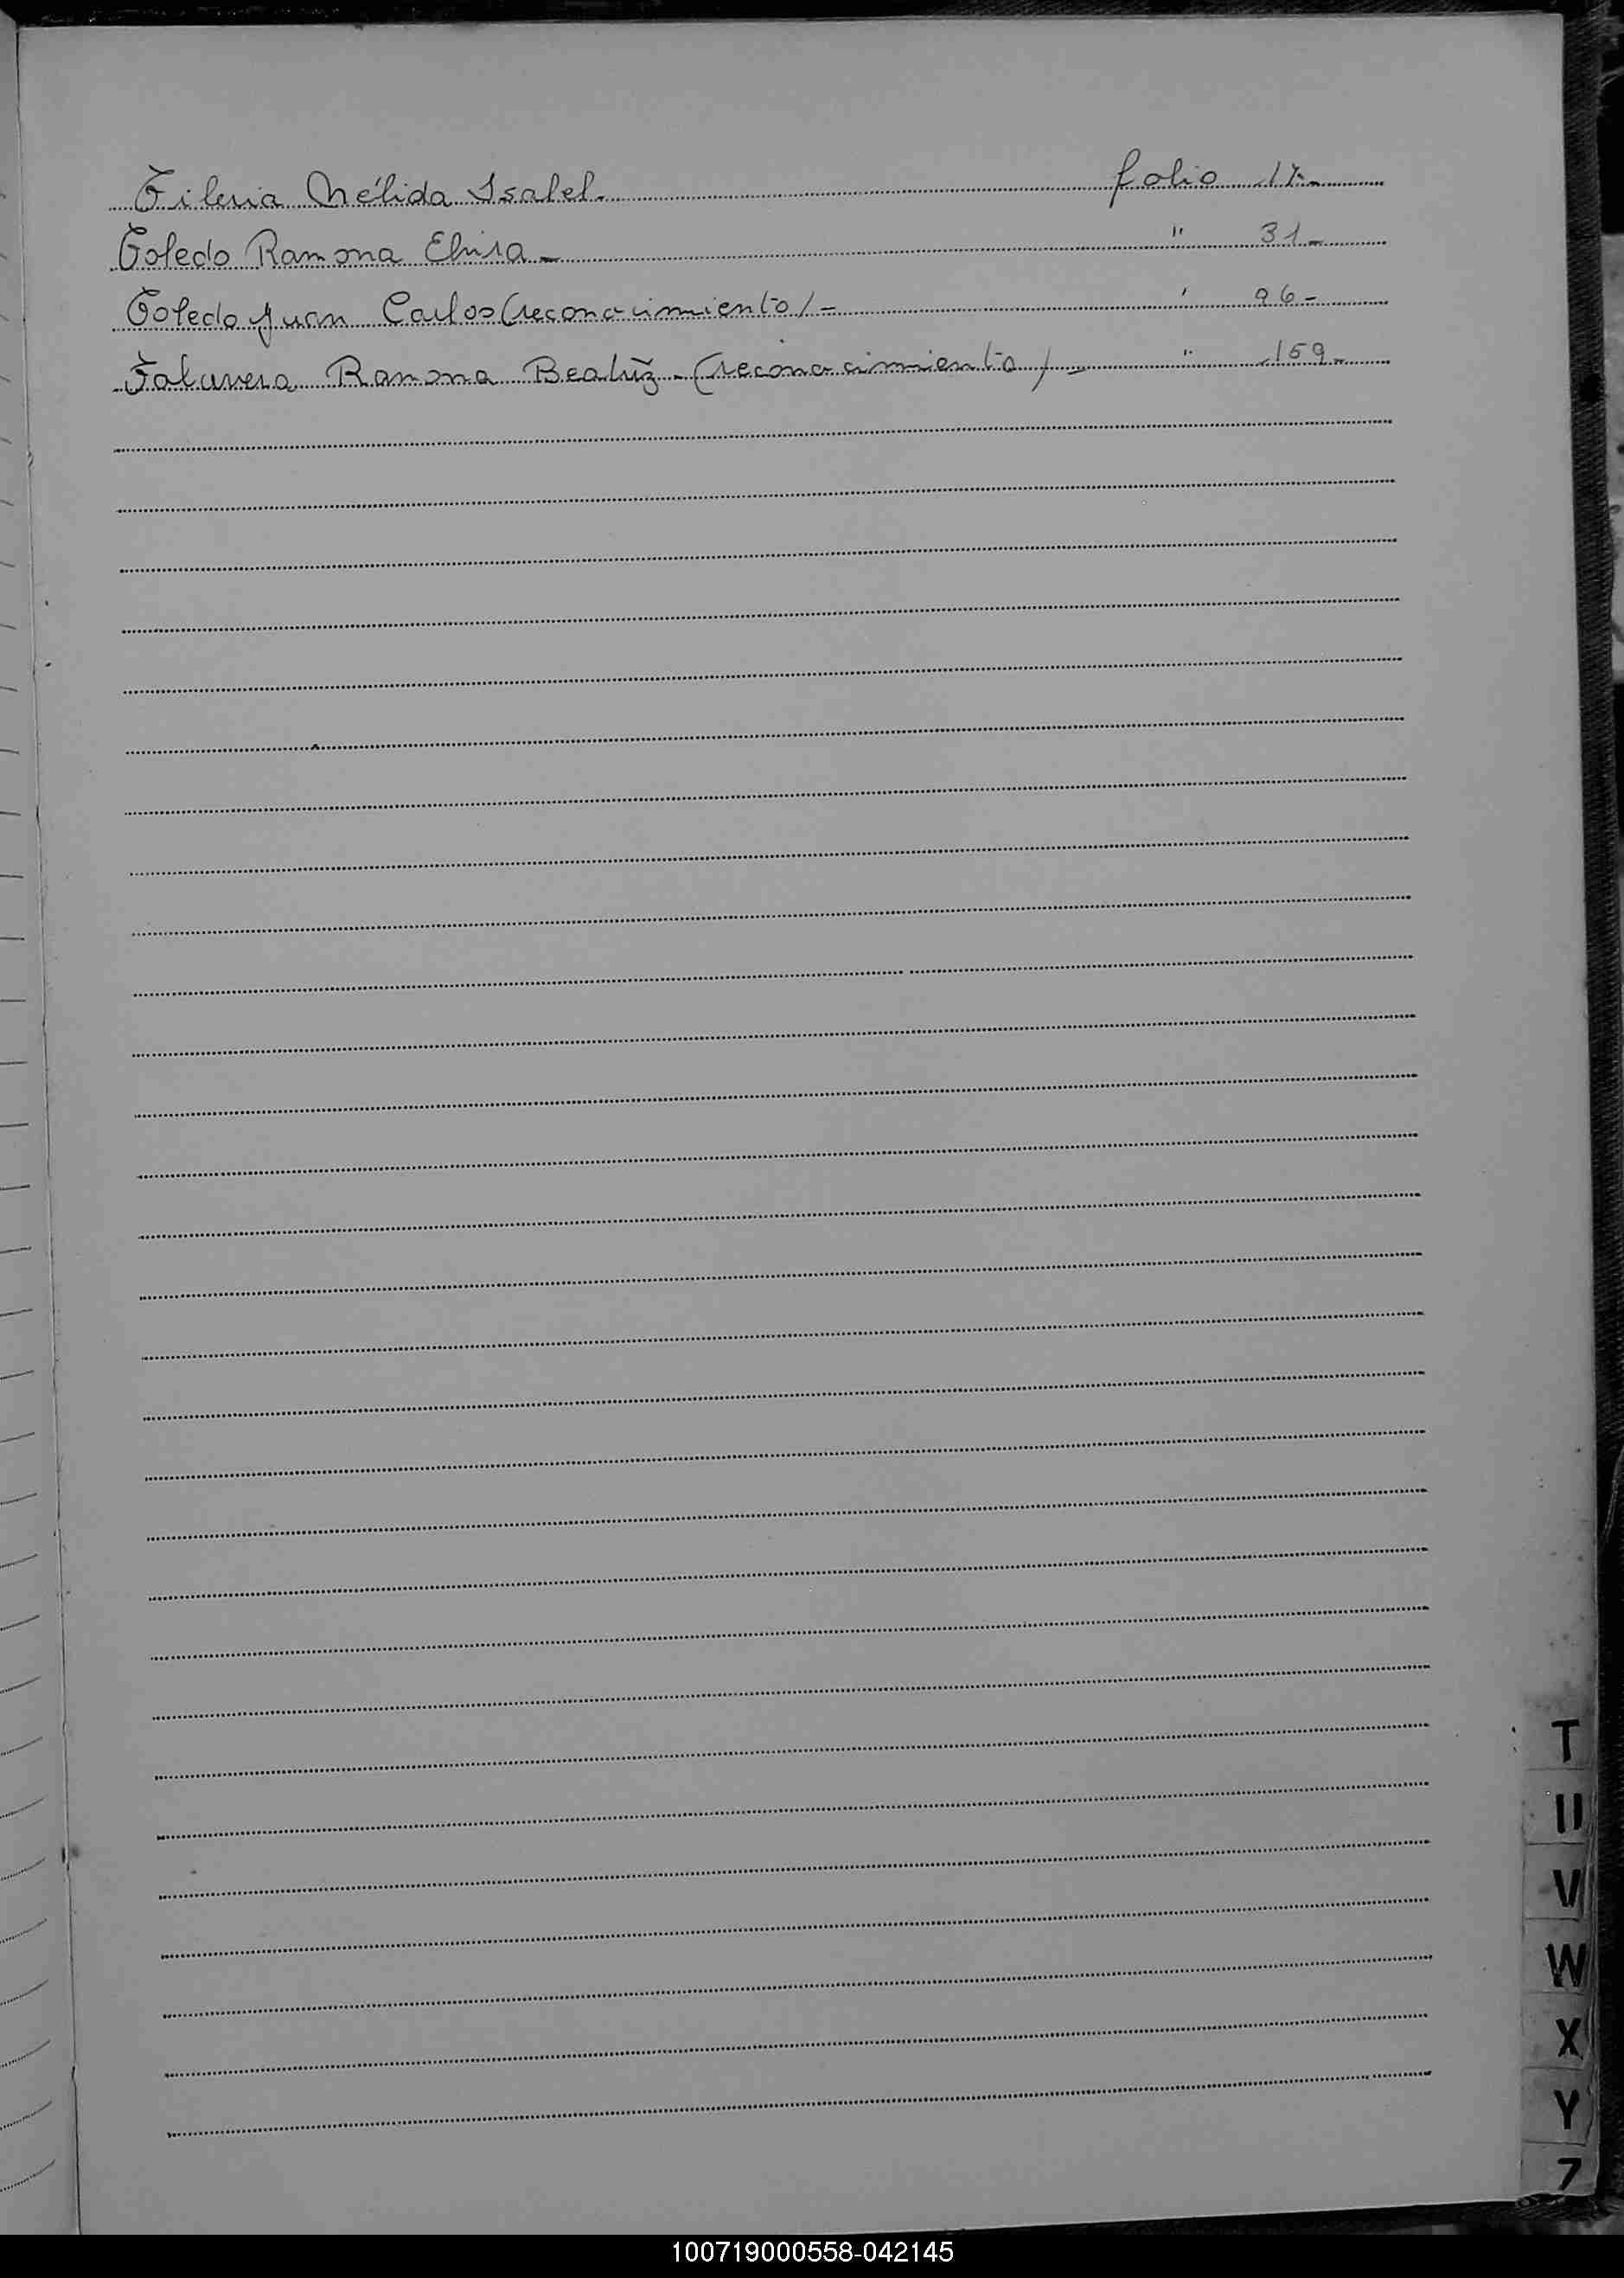 Tileria Nélida Isabel. folio 17.-
Toledo Ramona Elvira - " 31-
Toledo Juan Carlos (reconocimiento) - " 96-
Talavera Ramona Beatriz - (reconocimiento) - " 159-
T
U
V
W
X
Y
Z
100719000558-042145